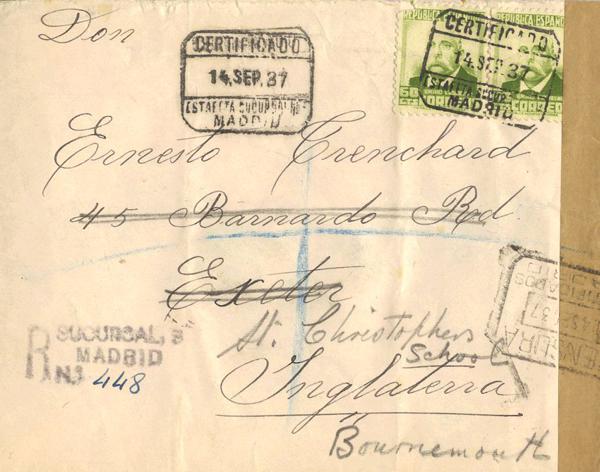 Don
CERTIFICADO
14.SEP.37
ESTAFETA SUCURSAL
MADRID
REPUBLICA ESPAÑOLA
CERTIFICADO
14.SEP.37
ESTAFETA SUCURSAL
MADRID
Ernesto Trenchard
45 Barnardo Rd
Exeter
St. Christophers
School
Inglaterra
Bournemouth
R SUCURSAL, 3
MADRID
N3 448
CENSURA